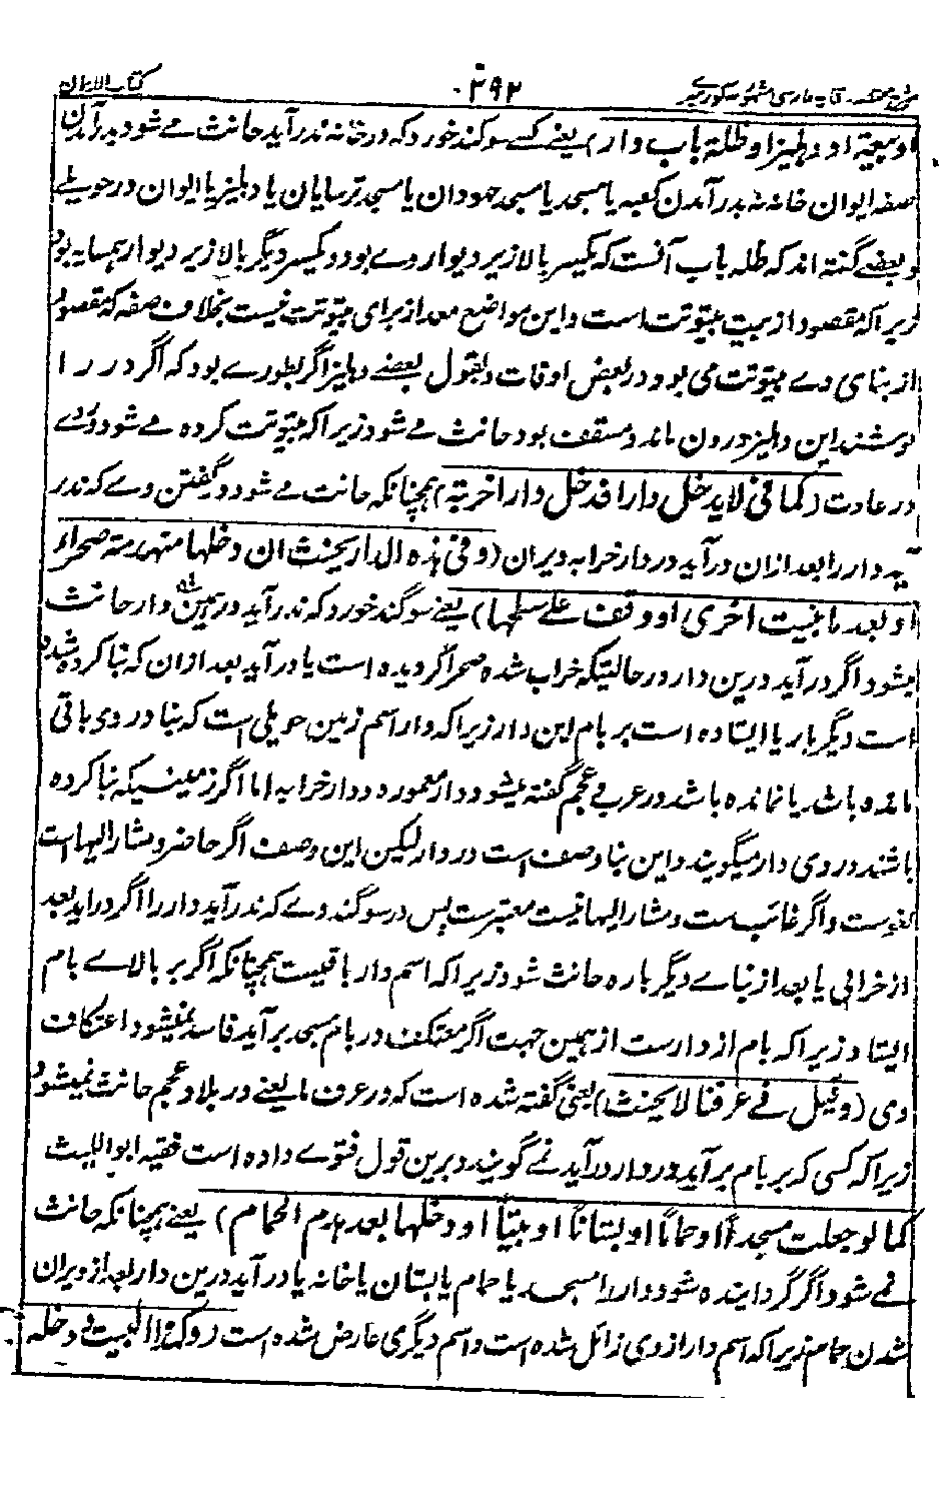 ۳۹۲
کتاب الایمان
او بیعة او دهلیز او ظلة باب دار) یعنے کسے سوگند خورد که در خانه ندرآید حانث مے شود بدرآمدن
صفه ایوان خانه نه بدرآمدن کعبه یا مسجد یا مسجد جهودان یا مسجد ترسایان یا دهلیز یا ایوان در حویلے
و بعضے گفته اند که ظله باب آنست که یکسر بالا زیر دیوار وے بود و یکسر دیگر بالا زیر دیوار همسایه بود
زیراکه مقصود از بیت بیتوتت است و این مواضع معد از برای بیتوتت نیست بخلاف صفه که مقصود
از بنای وے بیتوتت می بود در بعض اوقات و بقول بعضے دهلیز اگر بطورے بود که اگر در را
پوشند این دهلیز درون ماند و مسقف بود حانث مے شود زیراکه بیتوتت کرده مے شود دروے
در عادت (کما فی لا یدخل دارا فدخل دارا خربة) همچنانکه حانث مے شود و گفتن وے که ندر
آید دار را بعد ازان درآید در دار خرابه ویران (وفی هذه الدار یحنث ان دخلها منهدمة صحراء
او بعد ما بنیت اخری او وقف علے سطحها) یعنے سوگند خورد که ندرآید در همین دار حانث
میشود اگر درآید درین دار در حالتیکه خراب شده صحرا گردیده است یا درآید بعد ازان که بنا کرده شده
است دیگر بار یا ایستاده است بر بام این دار زیراکه دار اسم زمین حویلی است که بنا در وی باقی
مانده باشد یا نمانده باشد در عربے و عجم گفته میشود دار معموره و دار خرابه اما اگر زمینیکه بنا کرده
باشند در وی دار میگویند و این بنا وصف است در دار لیکن این وصف اگر حاضر و مشار الیها است
لغوست و اگر غائب ست و مشار الیها نیست معتبرست پس در سوگند وے که ندرآید دار را اگر درآید بعد
از خرابی یا بعد از بناے دیگر باره حانث شود زیراکه اسم دار باقیست همچنانکه اگر بر بالاے بام
ایستاد زیراکه بام از دارست از همین جهت اگر معتکف در بام مسجد برآید فاسد نمیشود اعتکاف
وی (وقیل فے عرفنا لا یحنث) یعنی گفته شده است که در عرف ما یعنے در بلاد عجم حانث نمیشود
زیراکه کسی که بر بام برآید در دار درآید نمے گویند و برین قول فتوے داده است فقیه ابو اللیث
کما لو جعلت مسجداً او حماماً او بستاناً او بیتاً او دخلها بعد هدم الحمام) یعنے همچنانکه حانث
نمے شود اگر گردانیده شود دار را مسجد یا حمام یا بستان یا خانه یا درآید درین دار بعد از ویران
شدن حمام زیراکه اسم دار از وی زائل شده است و اسم دیگری عارض شده است (وکهذا البیت و دخله